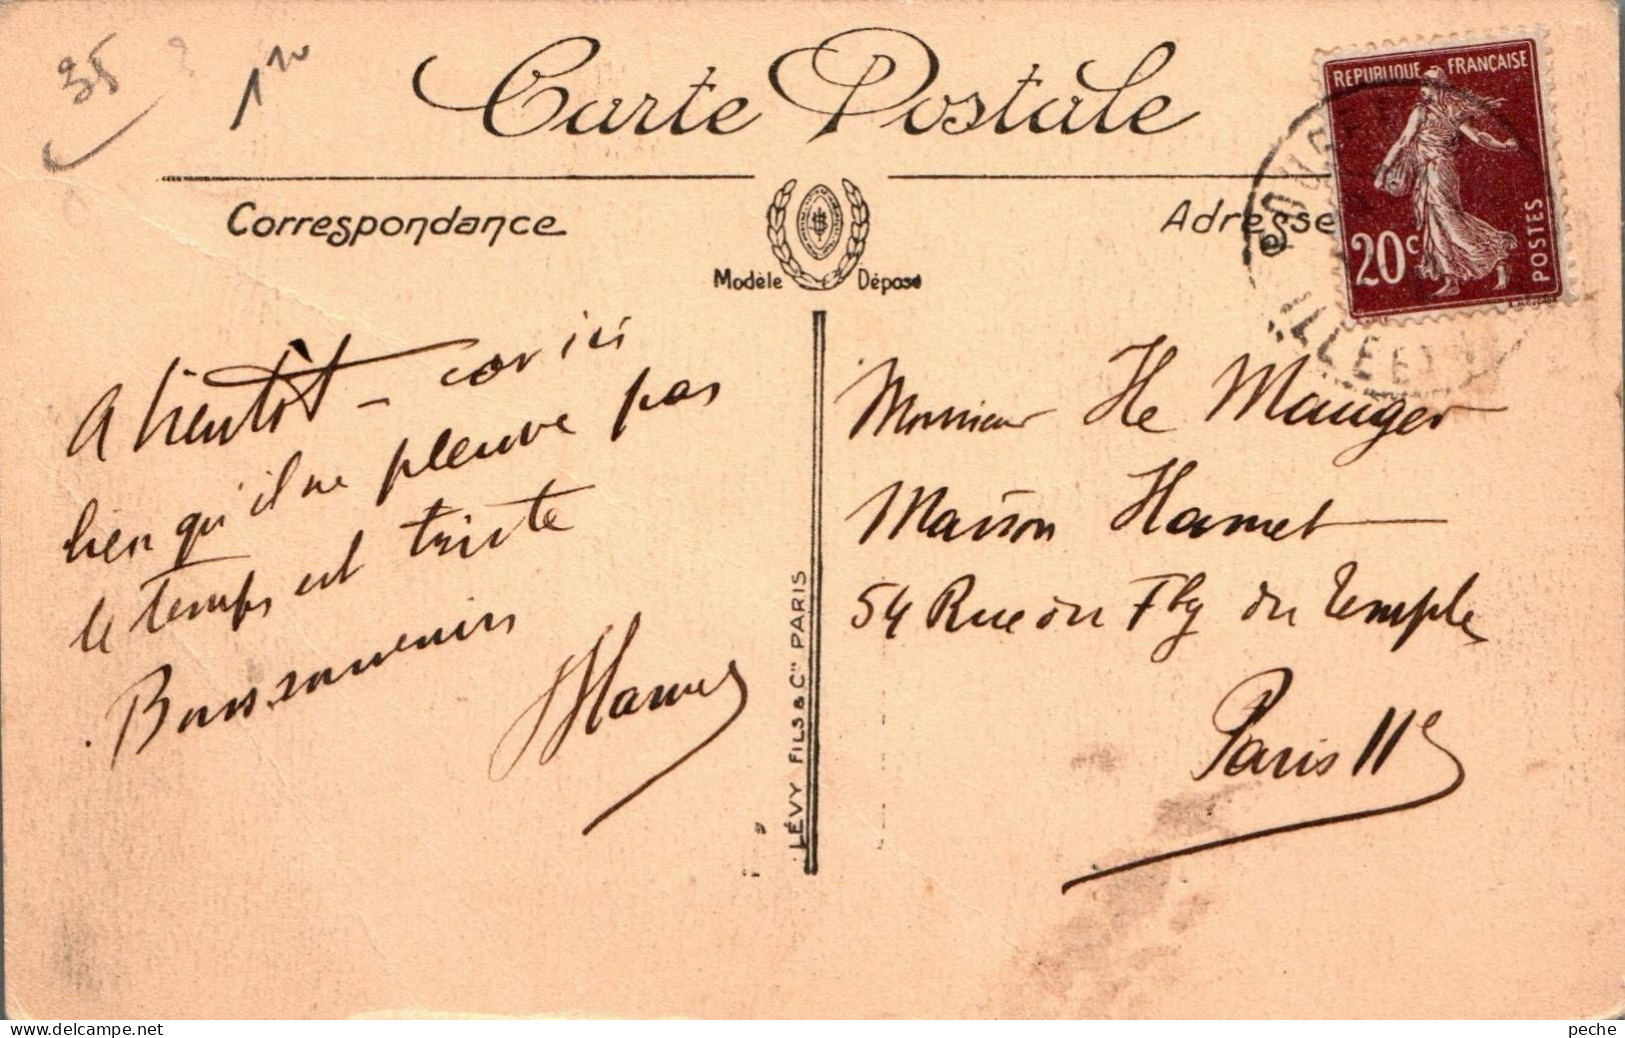 35
Carte Postale
REPUBLIQUE FRANÇAISE
20c
POSTES
Correspondance
Adresse
Modèle Déposé
A bientôt – car ici
bien qu'il ne pleuve pas
le temps est triste
Bons souvenirs
Hamet
LÉVY FILS & Cie PARIS
Monsieur He Mauger
Maison Hamet
54 Rue du Fbg du Temple
Paris 11e
peche